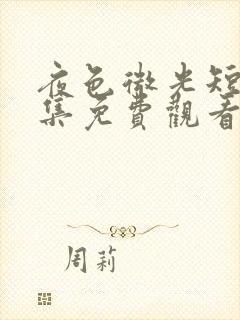 夜色微光短
集免費觀看
周莉